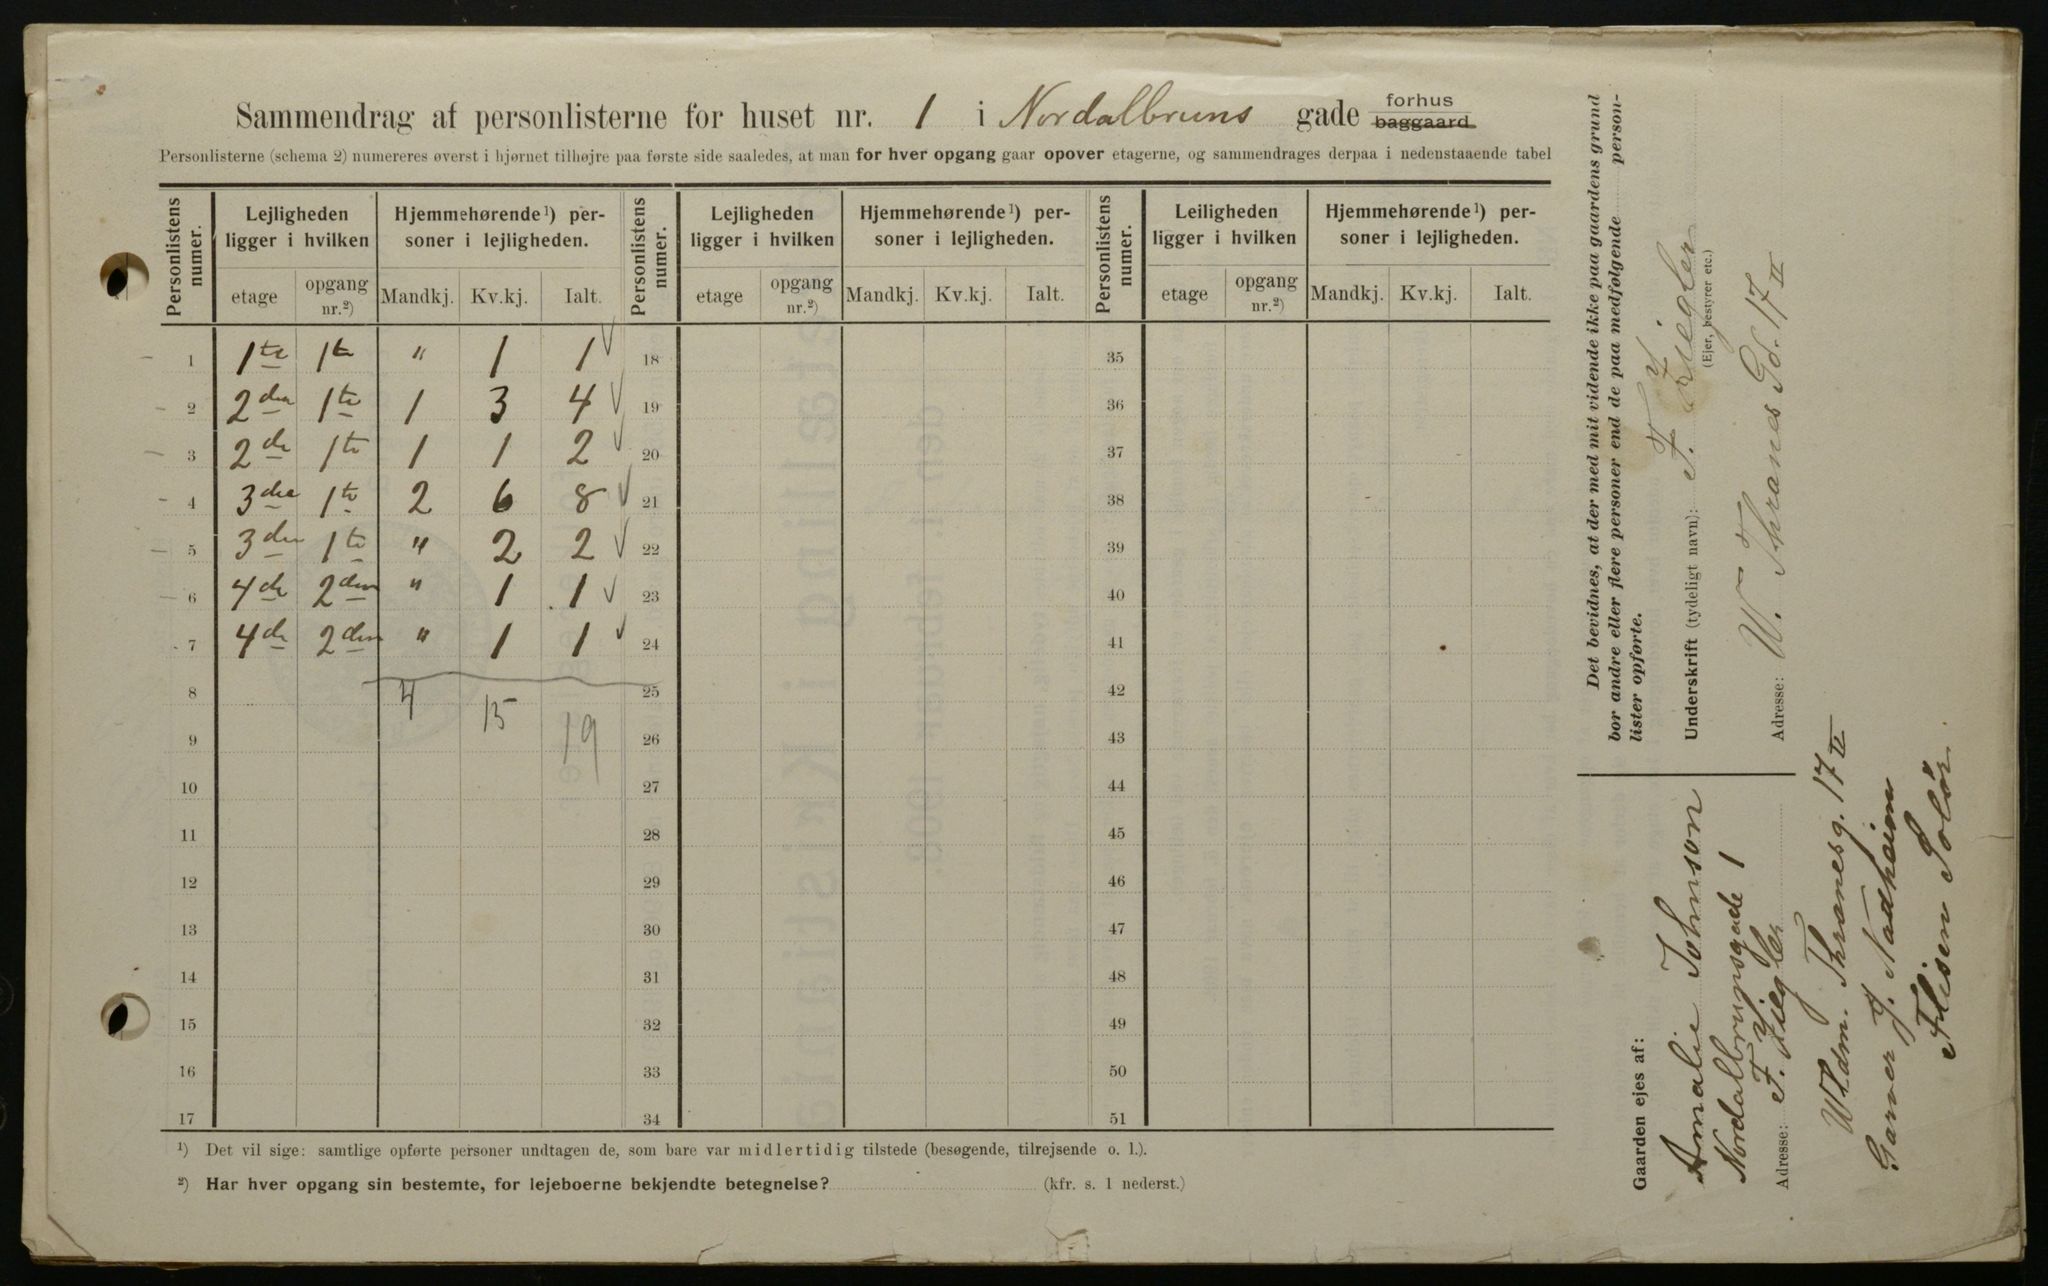 Sammendrag af personlisterne for huset nr. 1 i Nordalbruns gade forhus baggaard
Personlisterne (schema 2) numereres øverst i hjørnet tilhøjre paa første side saaledes, at man for hver opgang gaar opover etagerne, og sammendrages derpaa i nedenstaaende tabel
Personlistens numer. Lejligheden ligger i hvilken Hjemmehørende¹) personer i lejligheden. Personlistens numer. Lejligheden ligger i hvilken Hjemmehørende¹) personer i lejligheden. Personlistens numer. Leiligheden ligger i hvilken Hjemmehørende¹) personer i lejligheden.
etage opgang nr.²) Mandkj. Kv.kj. Ialt. etage opgang nr.²) Mandkj. Kv.kj. Ialt. etage opgang nr.²) Mandkj. Kv.kj. Ialt.
1 1te 1te " 1 1 18 35
2 2den 1te 1 3 4 19 36
3 2de 1te 1 1 2 20 37
4 3die 1te 2 6 8 21 38
5 3die 1te " 2 2 22 39
6 4de 2den " 1 1 23 40
7 4de 2den " 1 1 24 41
8 4 15 19 25 42
9 26 43
10 27 44
11 28 45
12 29 46
13 30 47
14 31 48
15 32 49
16 33 50
17 34 51
¹) Det vil sige: samtlige opførte personer undtagen de, som bare var midlertidig tilstede (besøgende, tilrejsende o. l.).
²) Har hver opgang sin bestemte, for lejeboerne bekjendte betegnelse? (kfr. s. 1 nederst.)
Det bevidnes, at der med mit vidende ikke paa gaardens grund
bor andre eller flere personer end de paa medfølgende person-
lister opførte.
Underskrift (tydeligt navn): F. Ziegler
(Ejer, bestyrer etc.)
Adresse: W. Thranes Gd. 17 II
Gaarden ejes af:
Amalie Johnson
Nordalbrunsgade 1
F. Ziegler
Adresse:
Wilh. Thranesg. 17 IV
Garver J. Nadheim
Flisen Solør